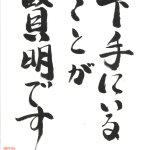 下手にいる
ことが
賢明です